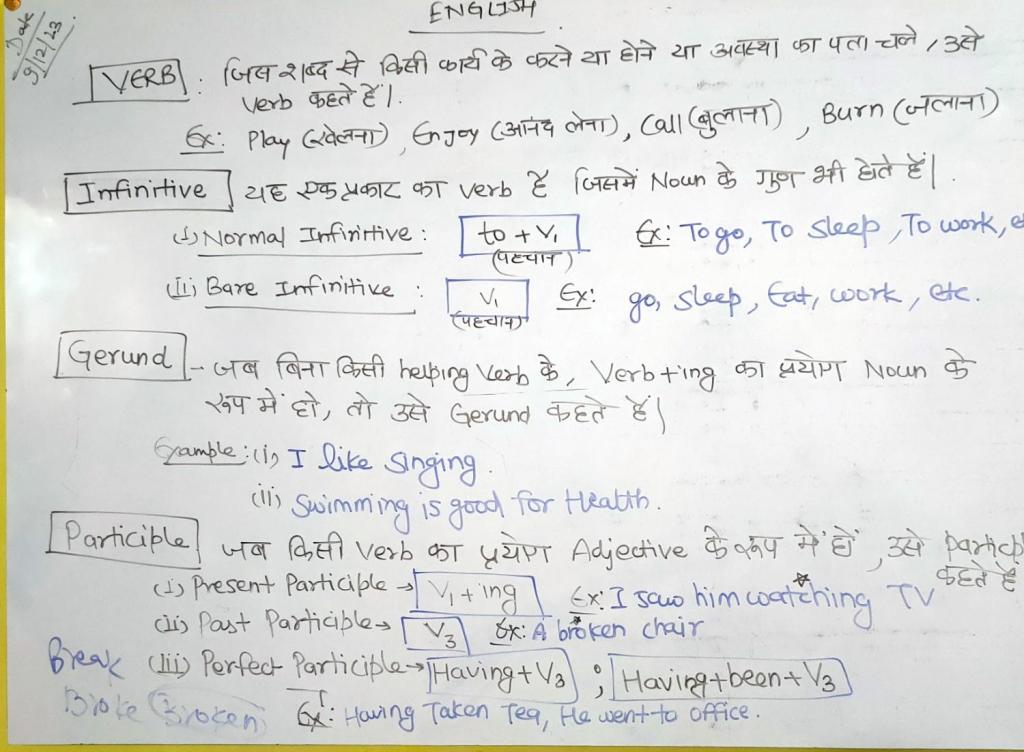 Date
9/12/23
ENGLISH
VERB : जिस शब्द से किसी कार्य के करने या होने या अवस्था का पता चले, उसे
verb कहते हैं।
Ex: Play (खेलना), Enjoy (आनंद लेना), Call (बुलाना), Burn (जलाना)
Infinitive यह एक प्रकार का verb है जिसमें Noun के गुण भी होते हैं।
(i) Normal Infinitive : to + V₁ Ex: To go, To sleep, To work, e
(पहचान)
(ii) Bare Infinitive : V₁ Ex: go, sleep, Eat, work, etc.
(पहचान)
Gerund - जब बिना किसी helping verb के, Verb+ing का प्रयोग Noun के
रूप में हो, तो उसे Gerund कहते हैं।
Example: (i) I like singing.
(ii) Swimming is good for Health.
Participle जब किसी verb का प्रयोग Adjective के रूप में हो, उसे particip
कहते हैं
(i) Present Participle → V₁ + ing Ex: I saw him watching TV
(ii) Past Participle → V₃ Ex: A broken chair
Break (iii) Perfect Participle → Having + V₃ ; Having+been+V₃
Broke Broken Ex: Having Taken Tea, He went to office.